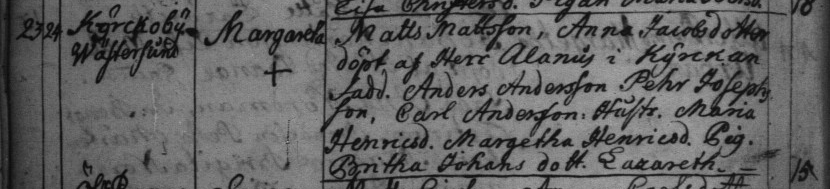 23 24 Kyrckobÿ Wästersund Margareta + Matts Mattsson, Anna Jacobsdotter
döpt af Herr Alanus i Kÿrckan
fadd. Anders Andersson Pehr Josephs
son, Carl Andersson: Hustr. Maria
Henricsd. Margetha Henricsd. Pig.
Britha Johans dott. Lazareth. = 15